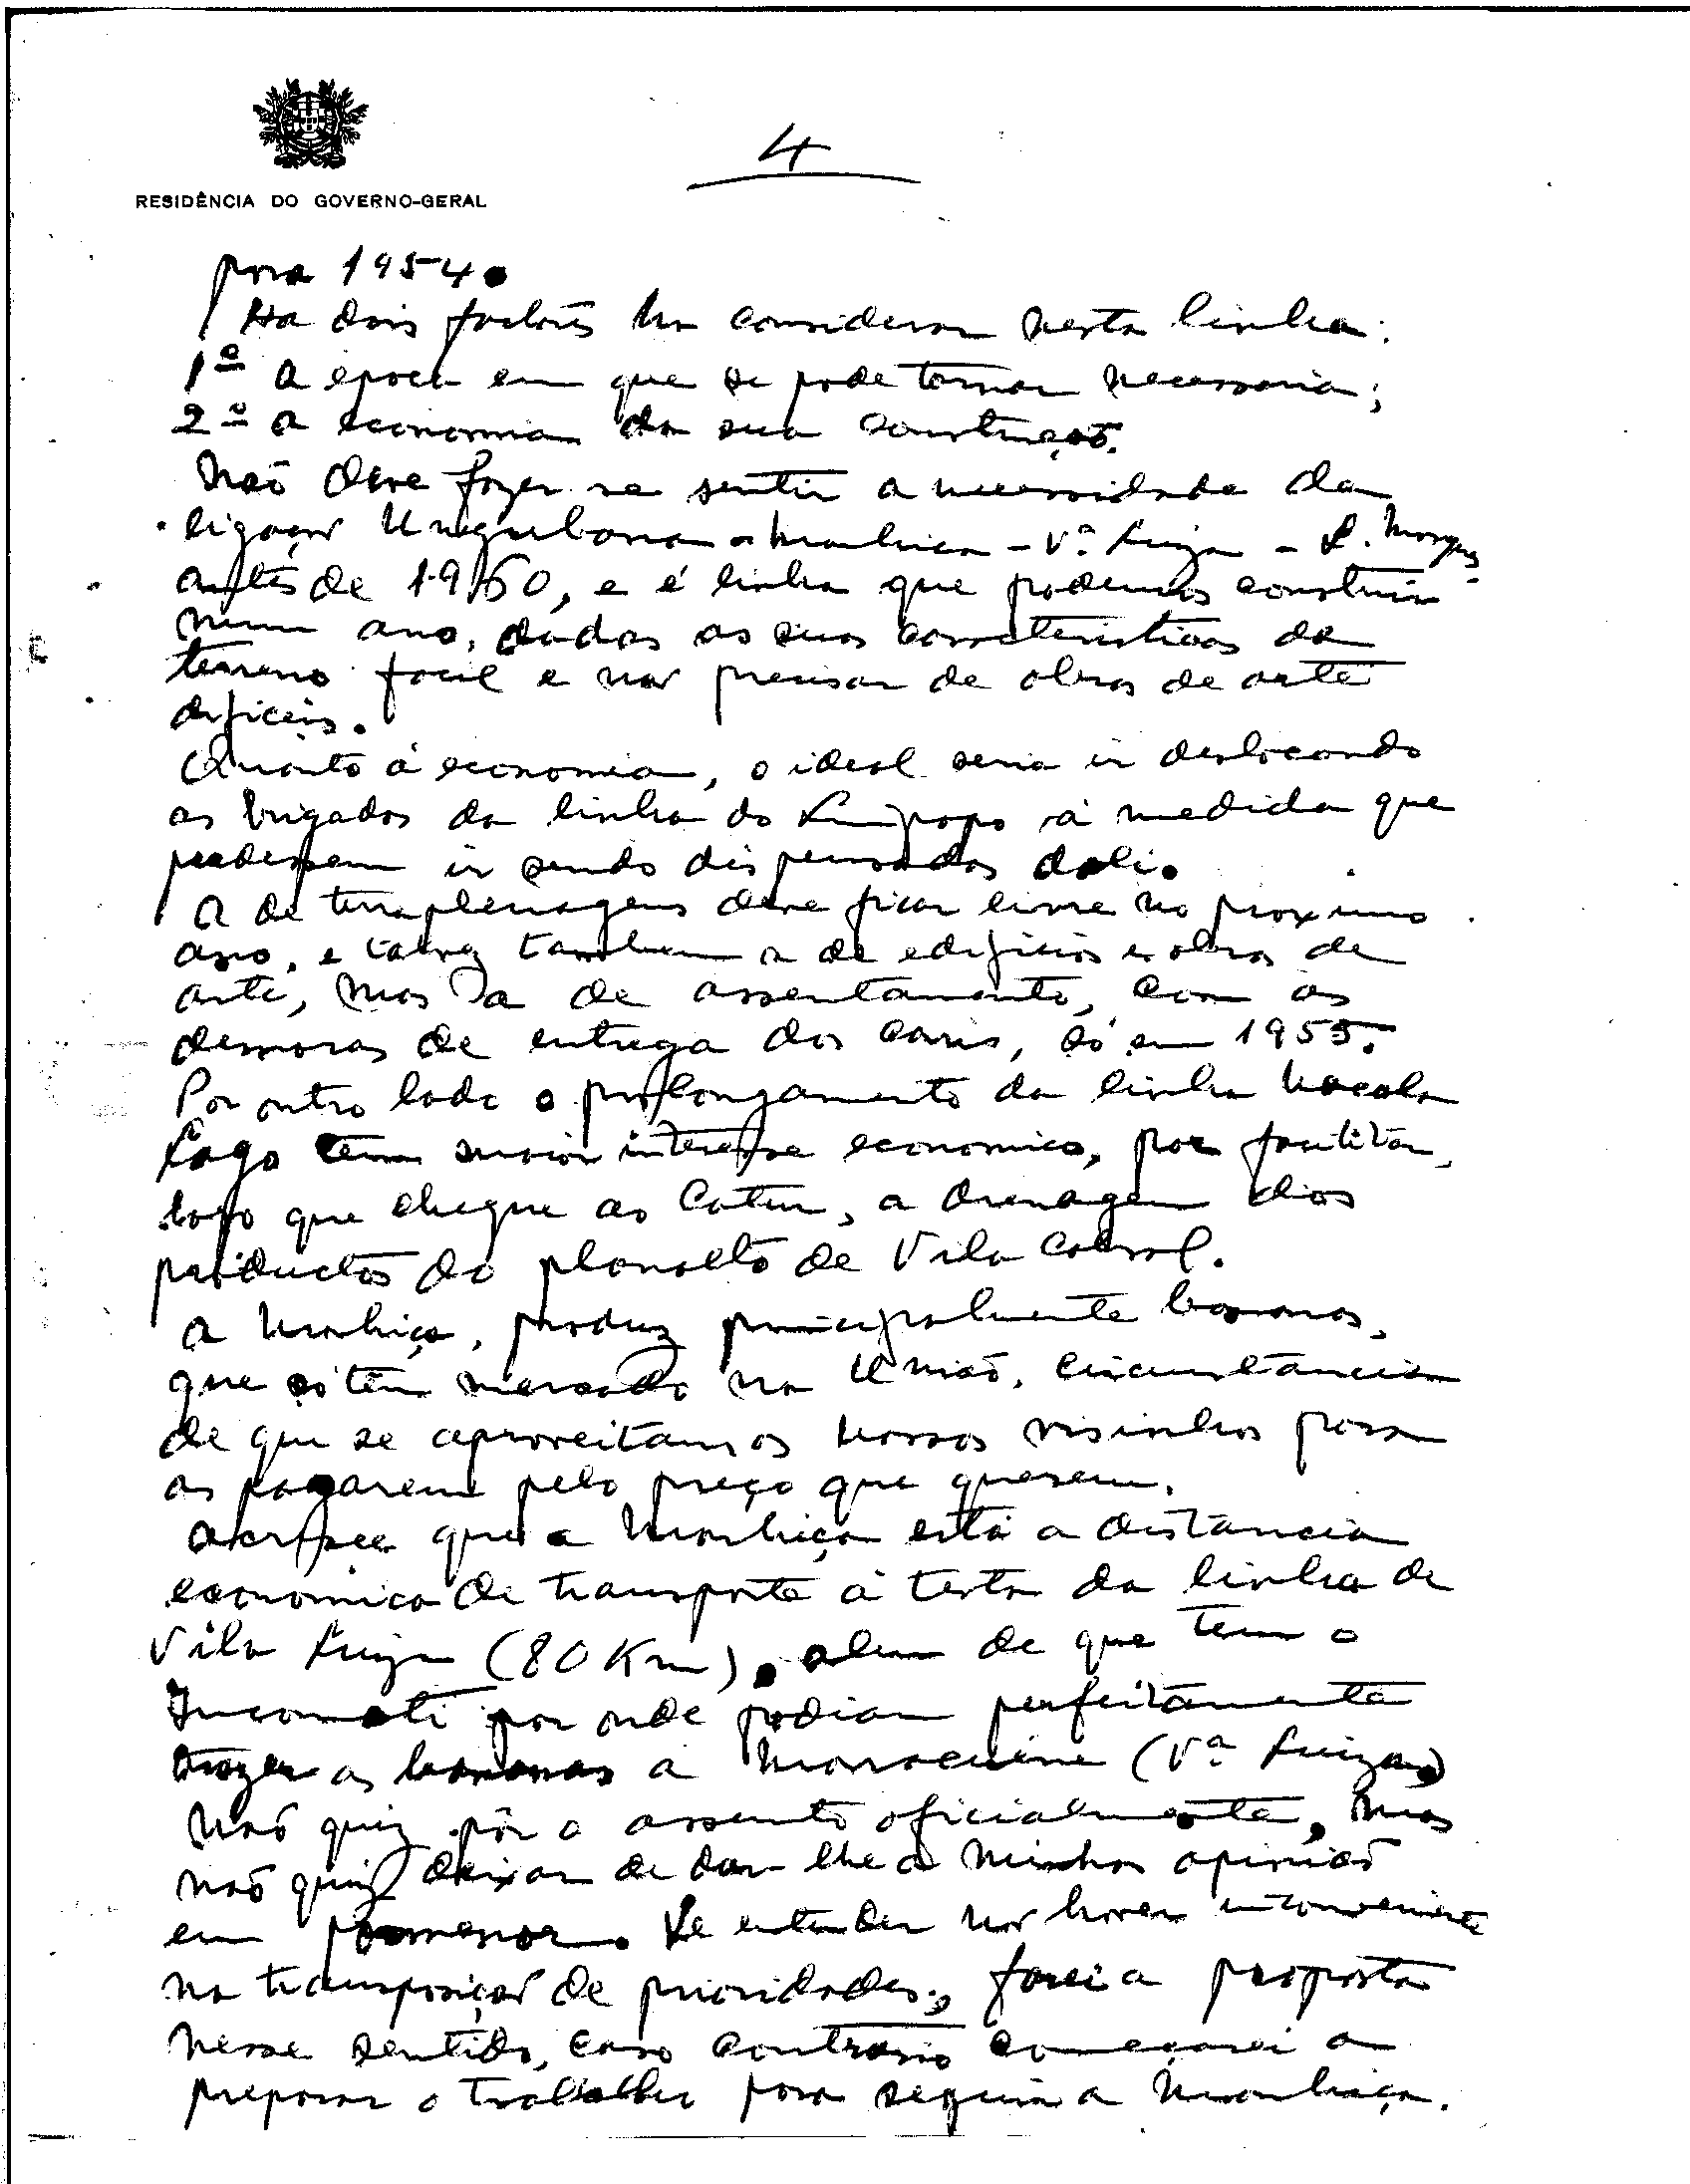 4
RESIDÊNCIA DO GOVERNO-GERAL
para 1954.
Ha dois factores a considerar nesta linha:
1º a epoca em que se pode tornar necessaria;
2º a economia da sua construção.
Não deve fazer se sentir a necessidade da
ligação Ungubana - Manhiça - Vª Luiza - L. Marques
antes de 1960, e é linha que podemos construir
num ano, dadas as suas caracteristicas de
terreno facil e não precisar de obras de arte
dificeis.
Quanto á economia, o ideal seria ir deslocando
as brigadas da linha do Limpopo á medida que
pudessem ir sendo dispensadas dali.
A de terraplenagens deve ficar livre no proximo
ano, e talvez tambem a de edificios e obras de
arte, mas a de assentamento, com as
demoras de entrega dos carris, só em 1955.
Por outro lado o prolongamento da linha Nacala
Lago tem maior interesse economico, por facilitar,
logo que chegue ao Catur, a drenagem dos
productos do planalto de Vila Cabral.
A Manhiça, produz principalmente bananas,
que só têm mercado na União, circunstancia
de que se aproveitam os nossos visinhos para
as pagarem pelo preço que querem.
Acresce que a Manhiça está a distancia
economica de transporte á testa da linha de
Vila Luiza (80 Km), alem de que tem o
Incomati por onde podiam perfeitamente
trazer as bananas a Marracuene (Vª Luiza)
Não quiz pôr o assunto oficialmente, mas
não quiz deixar de dar lhe a minha opinião
em pormenor. Se entender não haver inconveniente
na transposição de prioridades, farei a proposta
nesse sentido, caso contrario começarei a
preparar o trabalho para seguir a Manhiça.